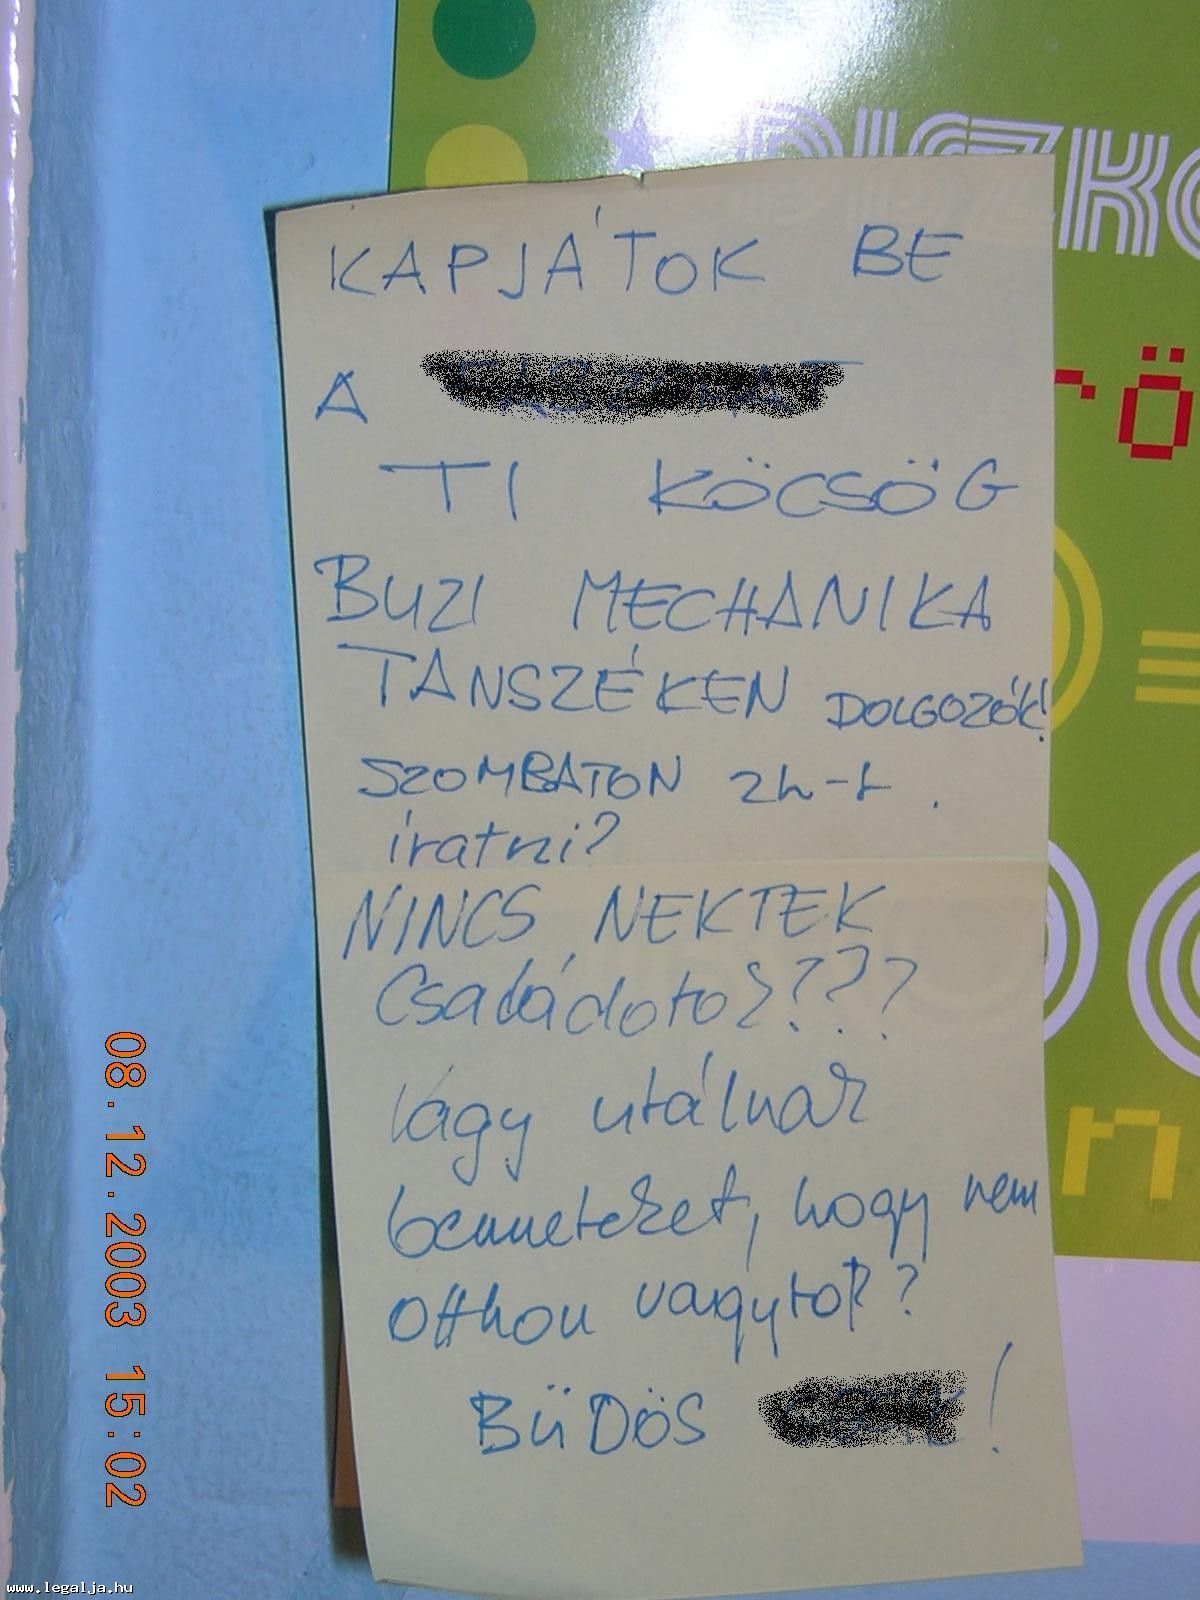 DISZKO
KAPJÁTOK BE
A
TI KÖCSÖG
BUZI MECHANIKA
TANSZÉKEN DOLGOZÓK!
SZOMBATON ZH-t
íratni?
NINCS NEKTEK
Családotok???
Vagy utálnak
benneteket, hogy nem
otthon vagytok?
BÜDÖS !
08.12.2003 15:02
www.legalja.hu